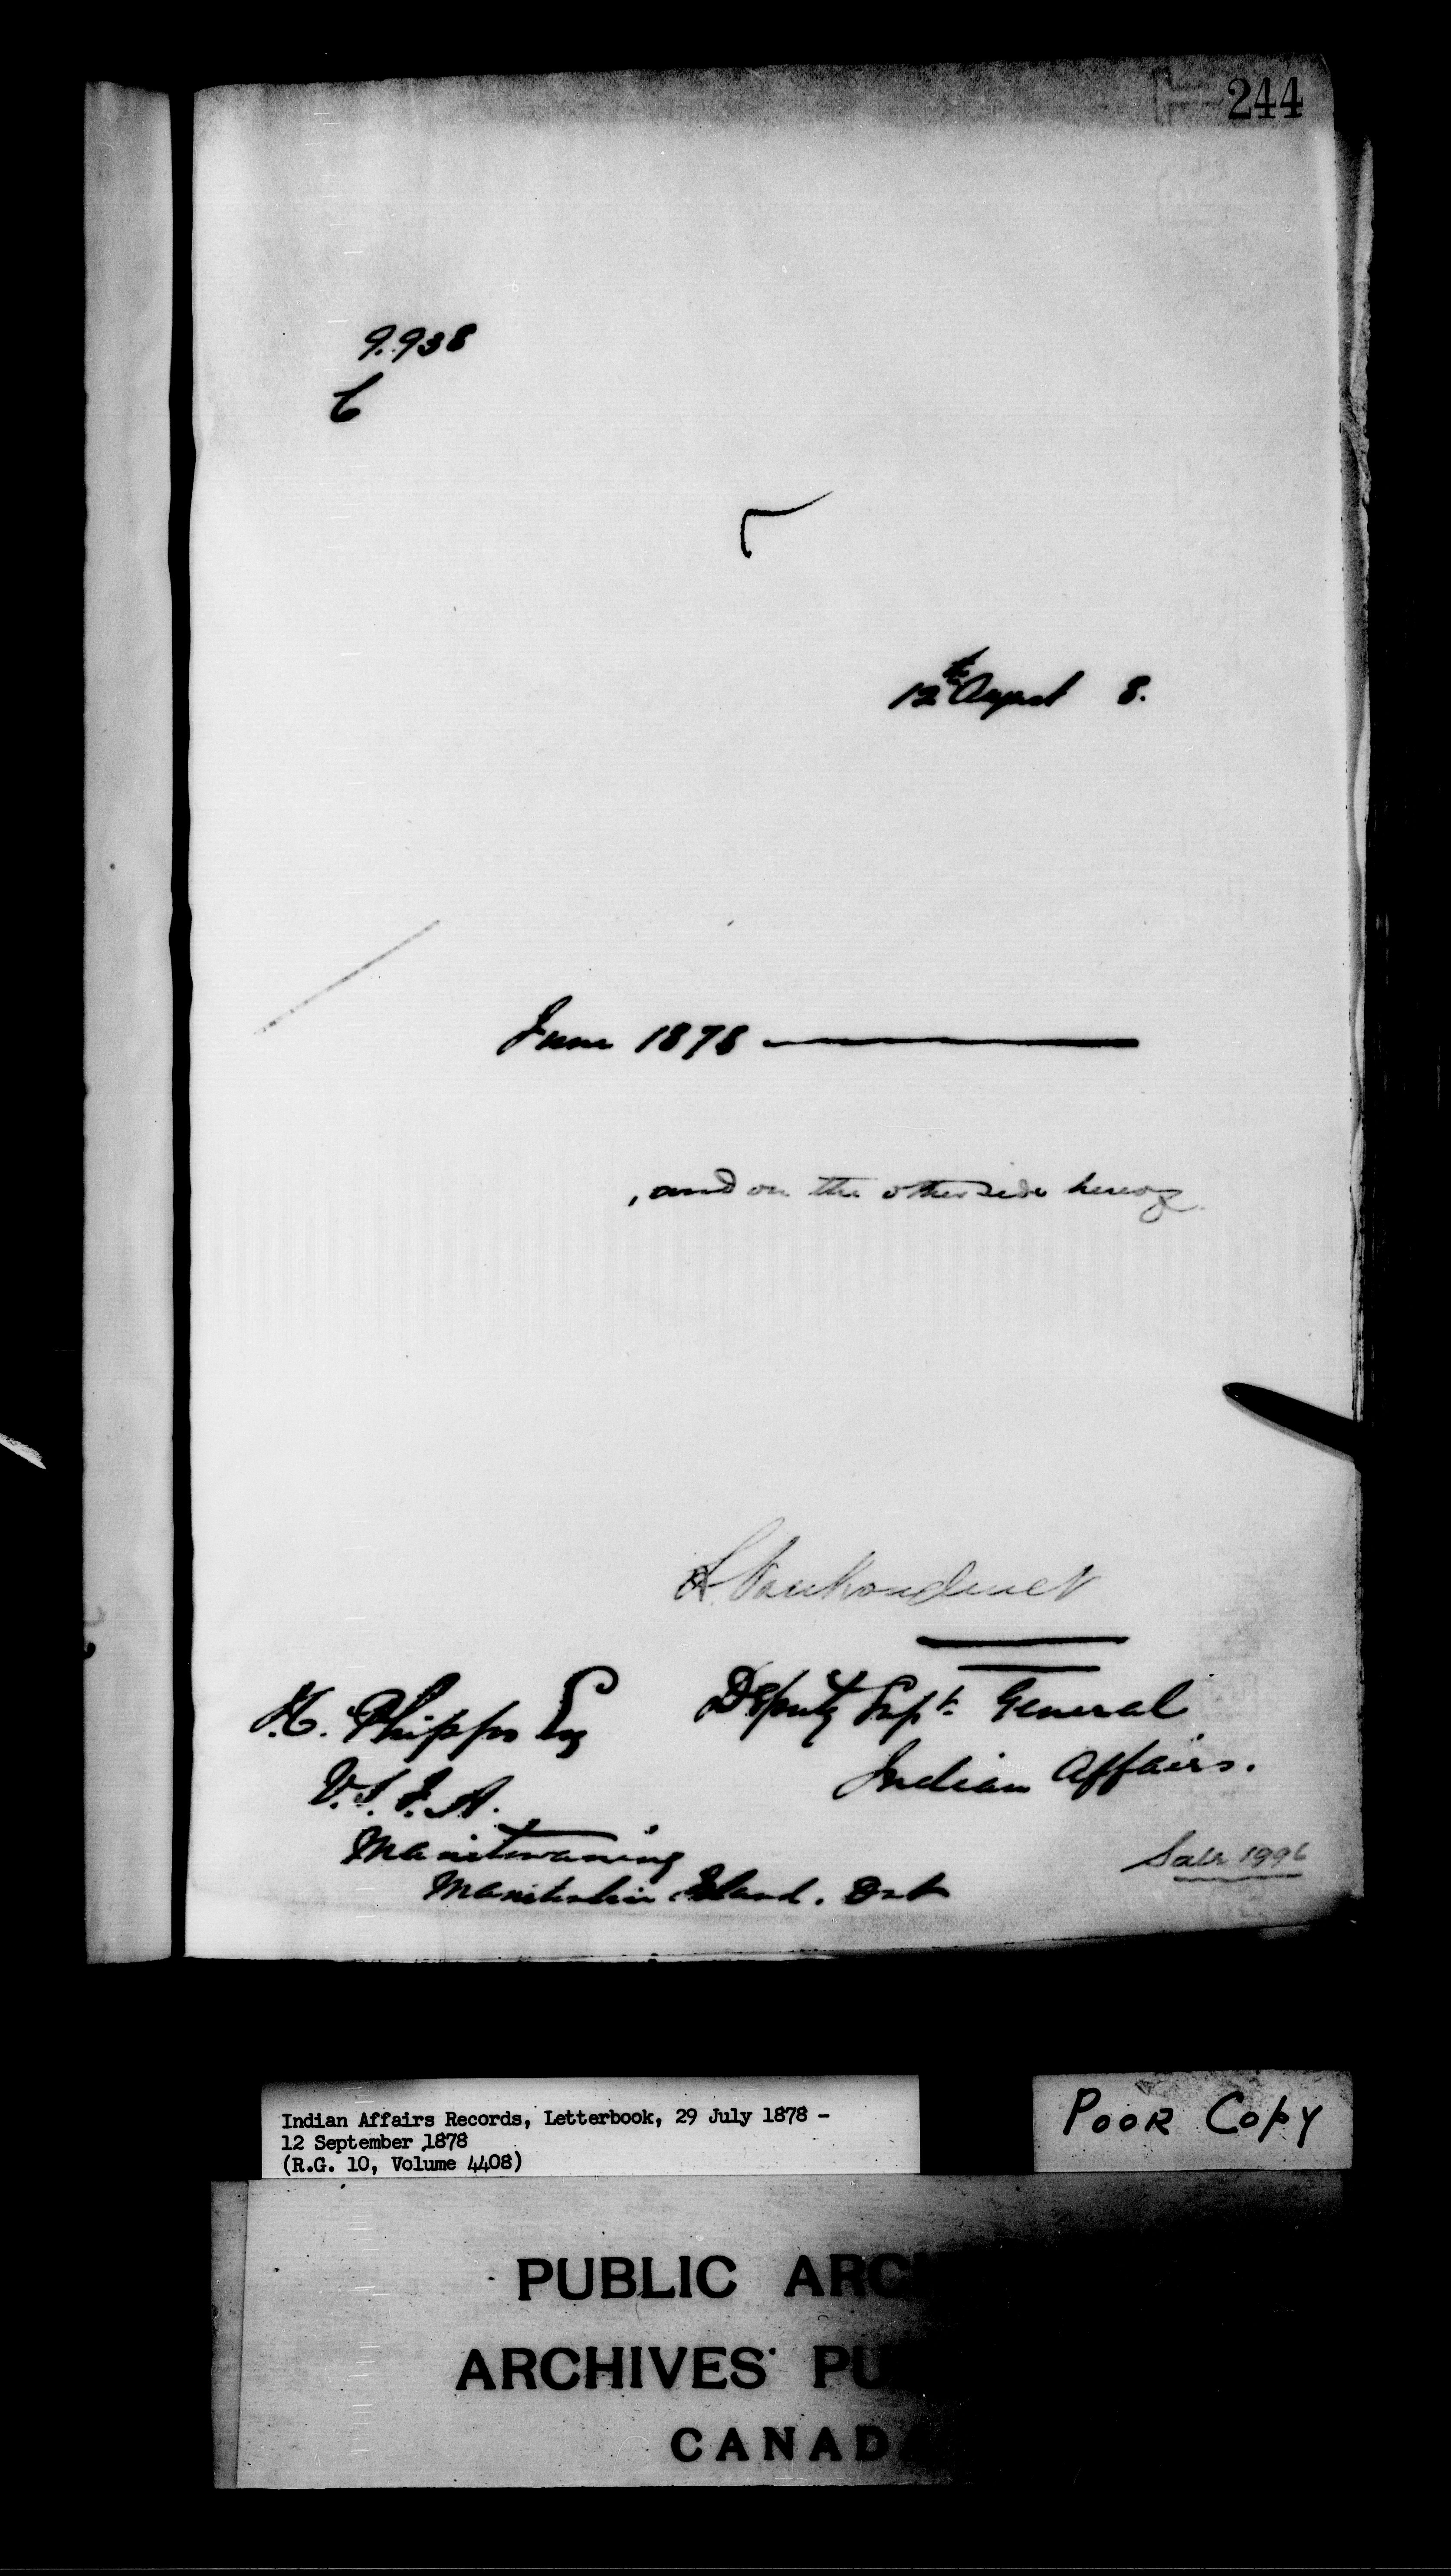 244
9.938
C
12th August 8.
June 1878
, and on the other side hereof
L. Vankoughnet
Deputy Supt. General
Indian Affairs.
J. C. Phipps Esq
V.S.I.A.
Manitowaning
Manitoulin Island. Ont
Sale 1996
Indian Affairs Records, Letterbook, 29 July 1878 -
12 September 1878
(R.G. 10, Volume 4408)
POOR COPY
PUBLIC ARC
ARCHIVES PU
CANADA